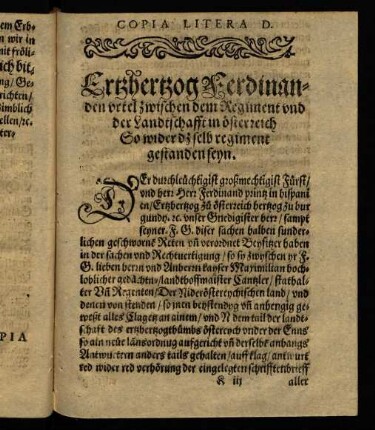 COPIA LITERA D.
Ertzhertzog Ferdinan-
den vrtel zwischen dem Regiment vnd
der Landtschafft in österreich
So wider dz selb regiment
gestanden seyn.
DEr durchleüchtigist großmechtigist Fürst/
vnd herr Herr Ferdinand printz in hispani
en/Ertzhertzog zů österreich hertzog zu bur
gundy. rc. vnser Gnedigister herr/ sampt
seyner. F. G. diser sachen halben sunder-
lichen geschworne Reten vñ verordnet Beysitzer haben
in der sachen vnd Rechtuertigung/ so sn zwyschen yr F-
G. lieben herrn vnd Anherrn kayser Maximilian hoch-
loblicher gedächtn/landthoffmaister Cantzler/ stathal-
ter Vñ Regenten/Der Niderösterrychischen land/ vnd
denen von stenden/ so jnen beystendyg vñ anhengig ge-
weßt alles Clagetz an ainem/ vnd dem tail der landt-
schaft des ertzhertzogthůmbs österreich vnder der Enns
so ain neüe länsordnug aufgericht vñ derselbē anhangs
Antwurtern anders tails gehalten/auff klag/ antwurt
red wider red verhörung der eingelegten schrifftetbrieff
K iij aller
em Erb-
n wir in
mit fröli-
ich bit,
ng/ Ge-
richten/
simblich
ellen/rc.
ter-
PIA